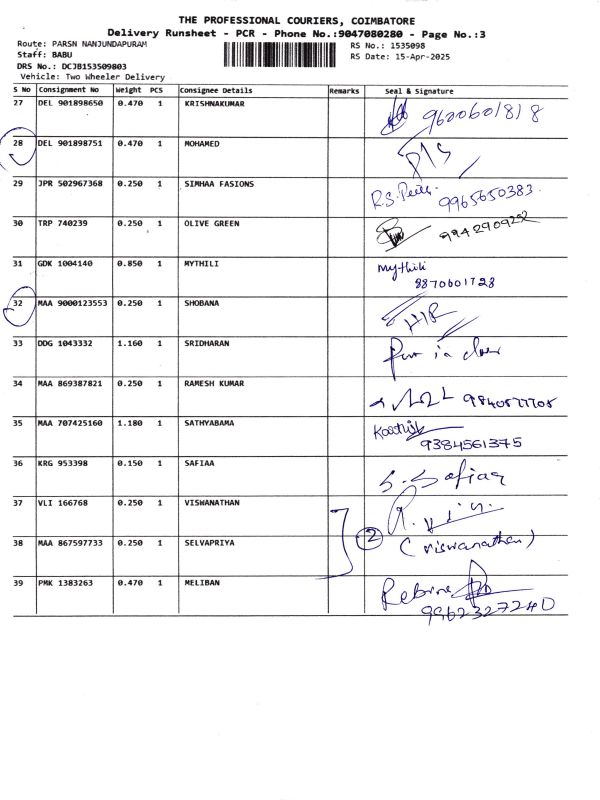 THE PROFESSIONAL COURIERS, COIMBATORE
Delivery Runsheet - PCR - Phone No.:9047080280 - Page No.:3
Route: PARSN NANJUNDAPURAM RS No.: 1535098
Staff: BABU RS Date: 15-Apr-2025
DRS No.: DCJB153509803
Vehicle: Two Wheeler Delivery
S No Consignment No Weight PCS Consignee Details Remarks Seal & Signature
27 DEL 901898650 0.470 1 KRISHNAKUMAR 9600601818
28 DEL 901898751 0.470 1 MOHAMED
29 JPR 502967368 0.250 1 SIMHAA FASIONS R.S. 9965650383
30 TRP 740239 0.250 1 OLIVE GREEN 9942909252
31 GDK 1004140 0.850 1 MYTHILI Mythili
8870601728
32 MAA 9000123553 0.250 1 SHOBANA
33 DDG 1043332 1.160 1 SRIDHARAN
34 MAA 869387821 0.250 1 RAMESH KUMAR 9840577705
35 MAA 707425160 1.180 1 SATHYABAMA Karthik
9384561375
36 KRG 953398 0.150 1 SAFIAA S. Safiaa
37 VLI 166768 0.250 1 VISWANATHAN
38 MAA 867597733 0.250 1 SELVAPRIYA 2 (viswanathan)
39 PMK 1383263 0.470 1 MELIBAN
9962327240